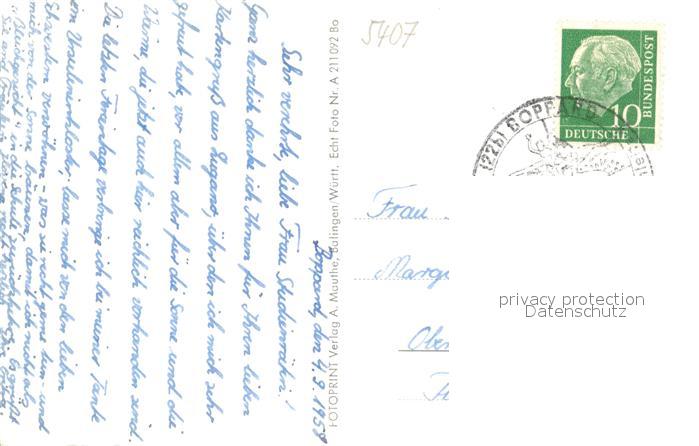 5407
BUNDESPOST
10
DEUTSCHE
(22b) BOPPARD
FOTOPRINT Verlag A. Mauthe, Balingen/Württ. Echt Foto Nr. A 211 092 Bo
Boppard, den 4.9.1958
Sehr verehrte, liebe Frau Studienrätin!
Ganz herzlich danke ich Ihnen für Ihren lieben
Kartengruß aus, über den ich mich sehr
gefreut habe, vor allem aber für die Sonne und die
Wärme, die jetzt auch hier reichlich vorhanden sind.
Die letzten Ferientage verbringe ich bei meiner Tante
im, lasse mich von den lieben
verwöhnen - was sie recht gerne tun - und
mich von der Sonne bräunen, damit ich nicht als
in die Schule
Sie und Fräulein
Frau
Marg
Ober
privacy protection
Datenschutz